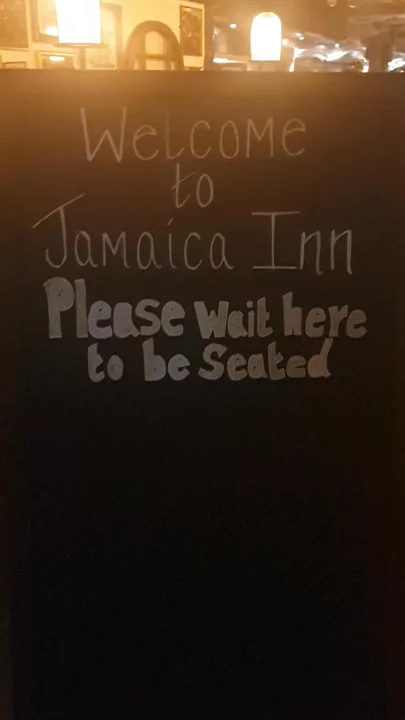 Welcome
to
Jamaica Inn
Please wait here
to be Seated